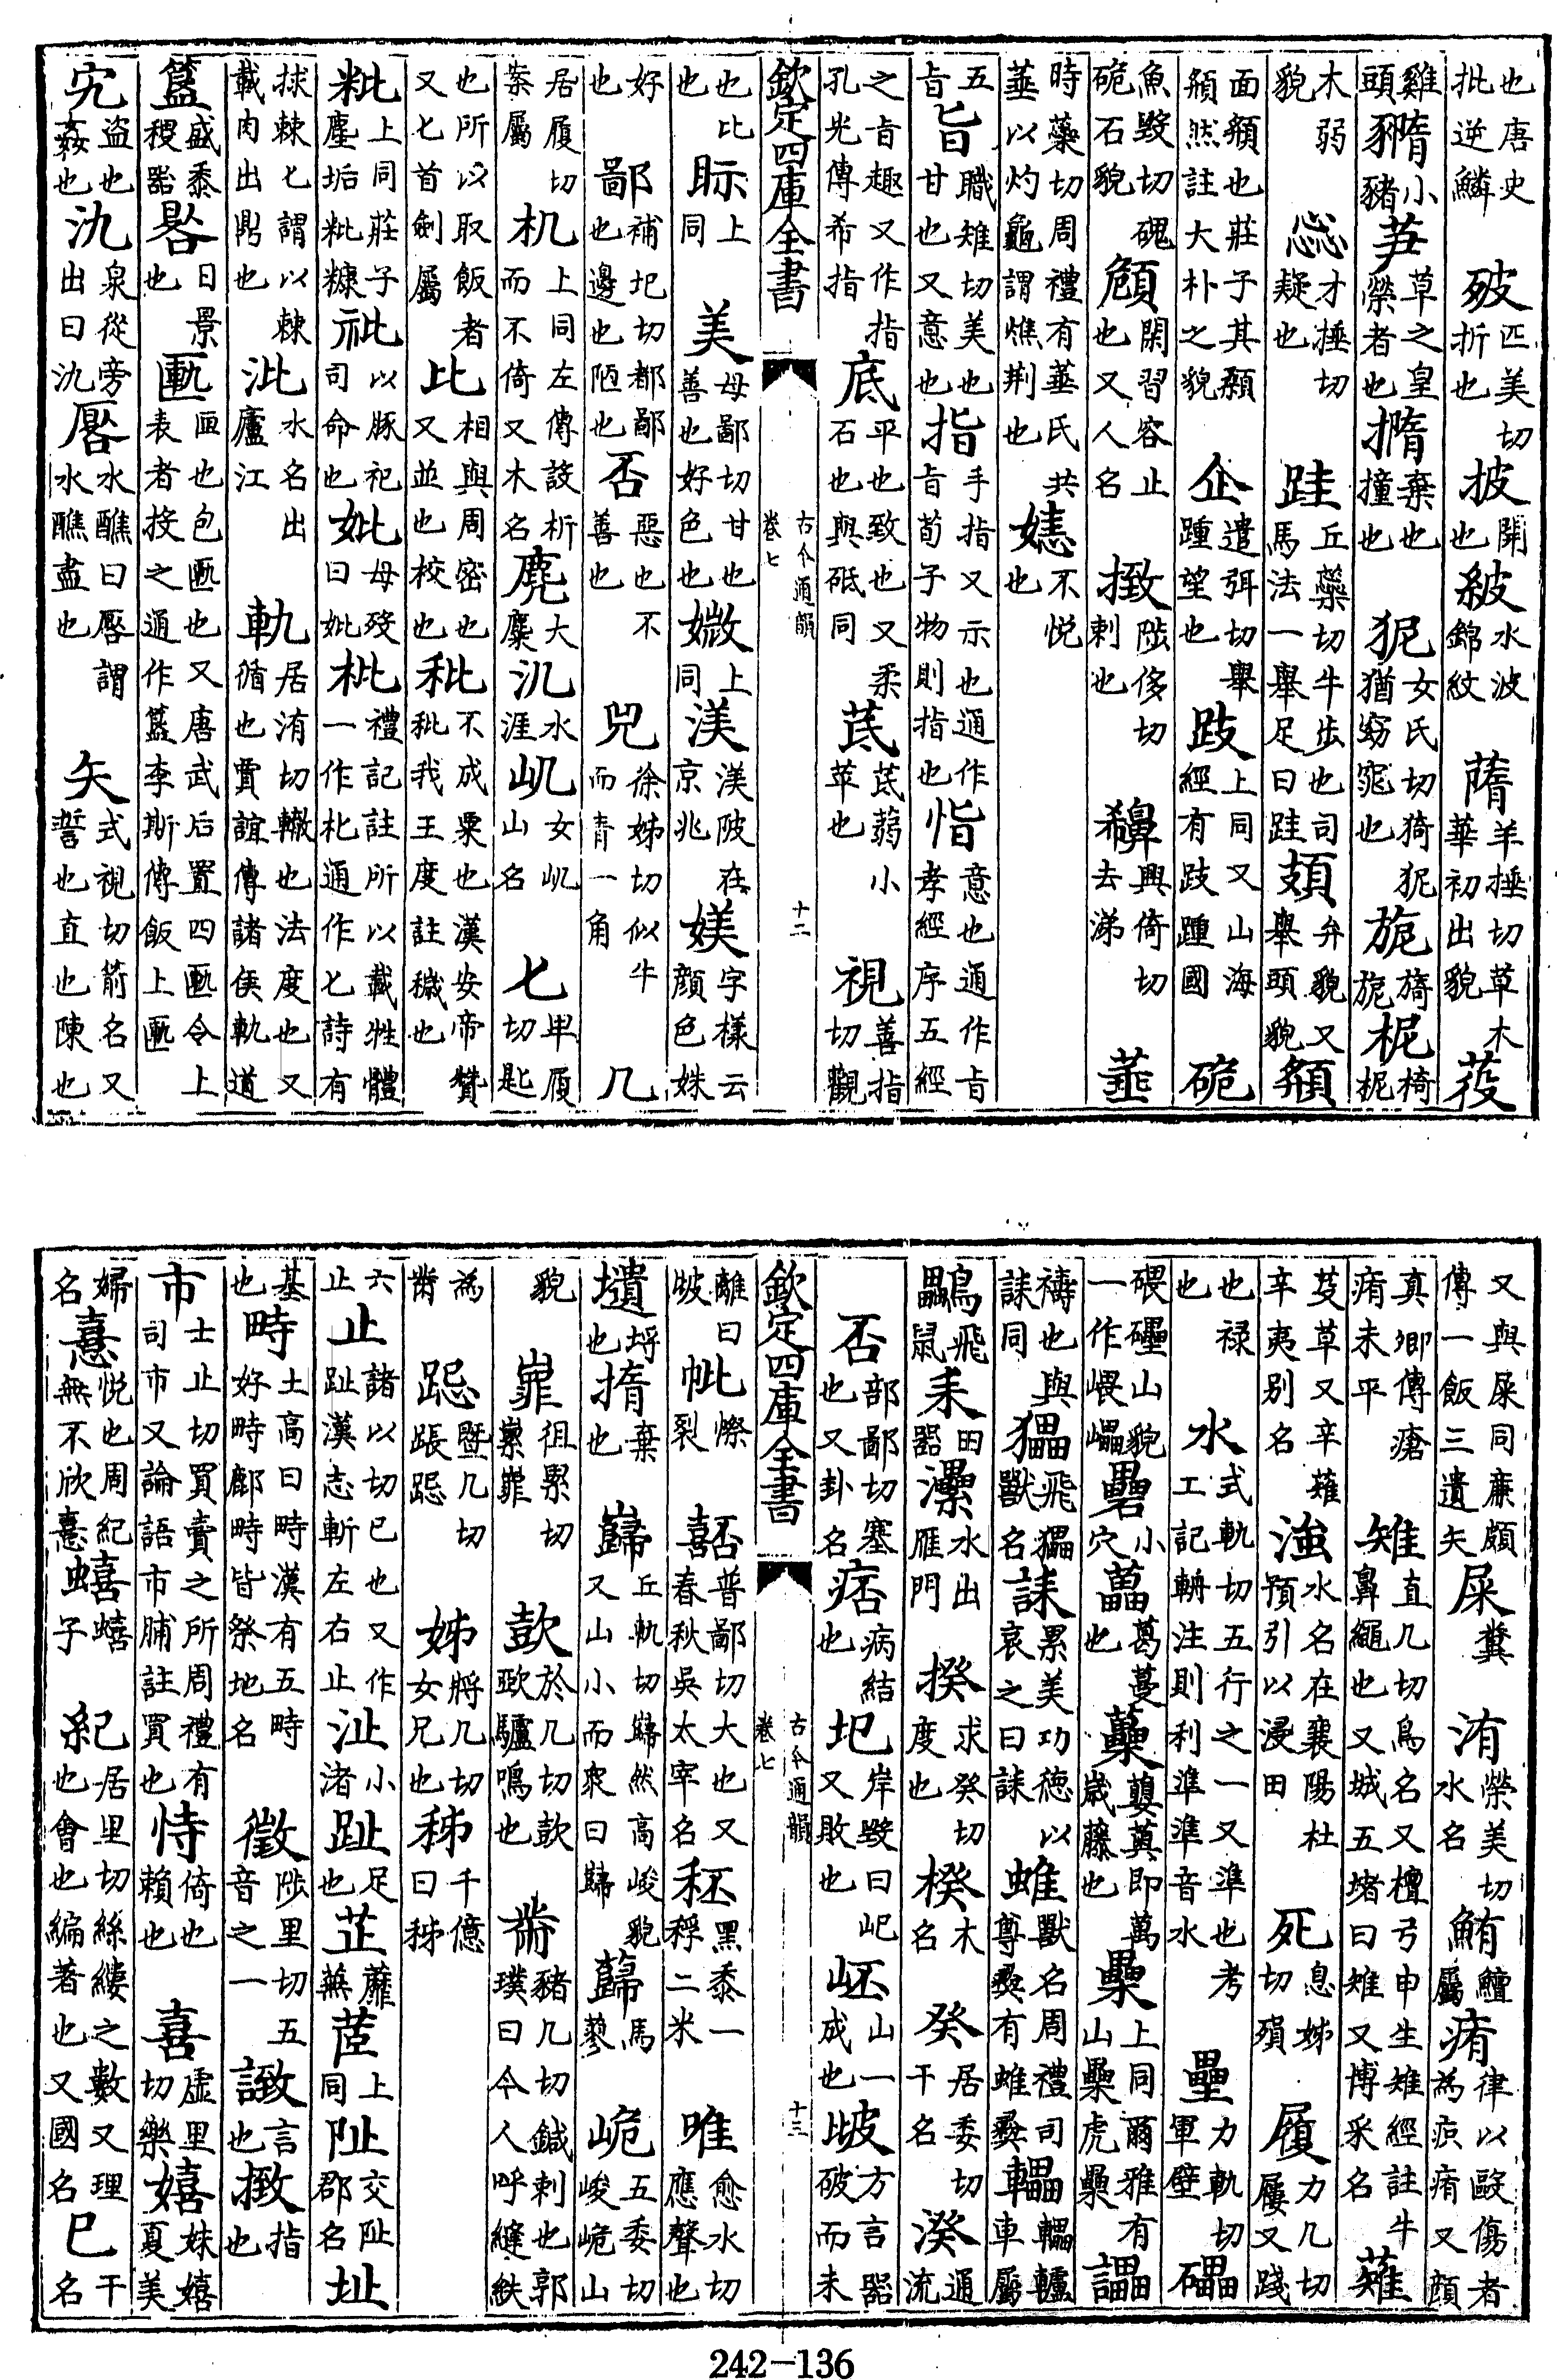 也唐史批逆鱗 㱟匹美切折也 披開也 紴水波錦紋 蓨羊捶切草木華初出貌 芛
雞頭 䝐小豬 芛草之皇榮者也 撱棄也撞也 狔女氏切猗狔猶窈窕也 旎旖旎 柅椅柅
木弱貌 惢才捶切疑也 跬丘蘂切牛步也司馬法一舉足曰跬 頍弁貌又舉頭貌 頯
面顙也莊子其顙頯然註大朴之貌 企遣弭切舉踵望也 跂上同又山海經有跂踵國 硊
魚毀切磈硊石貌 頠閑習容止也又人名 㨖陟侈切刺也 𪖥興倚切去涕 菙
時蘂切周禮有菙氏共菙以灼龜謂燋荆也 㛴不悦也
五旨 旨職雉切美也甘也又意也 指手指又示也通作旨荀子物則指也 恉意也通作旨孝經序五經
之旨趣又作指孔光傳希指 底平也致也又柔石也與砥同 茋茋蒻小苹也 視善指切觀
欽定四庫全書
古今通韻
卷七
十二
也比也 眎上同 美母鄙切甘也善也好色也 媺上同 渼渼陂在京兆 媄字樣云顔色姝
好也 鄙補圯切都鄙也邊也陋也 否惡也不善也 兕徐姊切似牛而青一角 几
居履切案屬 机上同左傳設析而不倚又木名 麂大麋 氿水涯 屼女屼山名 匕卑履切匙
也所以取飯者又匕首劍屬 比相與周密也又並也校也 秕不成粟也漢安帝贊秕我王度註穢也
粃上同莊子塵垢粃糠 祉以豚祀司命也 妣母歿曰妣 枇禮記註所以載牲體一作朼通作匕詩有
捄棘匕謂以棘載肉出鼎也 沘水名出廬江 軌居洧切轍也法度也又循也賈誼傳諸侯軌道
簋盛黍稷器 晷日景也 匭匣也包匭也又唐武后置四匭令上表者投之通作簋李斯傳飯上匭
宄盗也姦也 氿泉從旁出曰氿 厬水醮曰厬謂水醮盡也 矢式視切箭名又誓也直也陳也
又與屎同亷頗傳一飯三遺矢 屎糞 洧榮美切水名 鮪鱣屬 痏律以毆傷者為疻痏又顔
真卿傳瘡痏未平 雉直几切鳥名又檀弓申生雉經註牛鼻繩也又城五堵曰雉又博采名 薙
芟草又辛薙辛夷别名 𣹰水名在襄陽杜預引以浸田 死息姊切殞 履力几切屨又踐
也禄也 水式軌切五行之一又準也考工記輈注則利準準音水 壘力軌切軍壁 礧
磈礨山貌一作嵔㠥 礨小穴 藟葛蔓也 虆蘡薁即萬歲藤也 櫐上同爾雅有山櫐虎櫐 讄
禱也與誄同 㹎飛㹎獸名 誄累美功德以哀之曰誄 蜼獸名周禮司尊彝有蜼彝 轠轠轤車屬
鸓飛鼠 耒田器 灅水出雁門 揆求癸切度也 楑木名 癸居委切干名 湀通流
否部鄙切塞也又卦名 痞病結也 圯岸毀曰圯又敗也 岯山一成也 㱟方言器破而未
欽定四庫全書
古今通韻
卷七
十三
離曰㱟 㡙㡜裂 嚭普鄙切大也又春秋吳太宰名 秠黑黍一稃二米 唯愈水切應聲也
壝埓也 㨊棄也 巋丘軌切巋然高峻貌又山小而衆曰巋 蘬馬蓼 峗五委切峻峗山
貌 嶵徂累切㠥嶵 欯於几切欯歐驢鳴也 黹豬几切鍼刺也郭璞曰今人呼縫紩
為黹 跽暨几切䠆跽 姊將几切女兄也 秭千億曰秭
六止 止諸以切已也又作趾漢志斬左右止 沚小渚 趾足也 芷蘼蕪 茝上同 阯交阯郡名 址
基也 畤土高曰畤漢有五畤好畤鄜畤皆祭地名 徵陟里切五音之一 䛗言也 㨖指也
市士止切買賣之所周禮有司市又論語市脯註買也 恃倚也賴也 喜虚里切樂 嬉妹嬉夏美
婦名 憙悦也周紀無不欣憙 蟢蟢子 紀居里切絲縷之數又理也會也編著也又國名 己干名
242-136